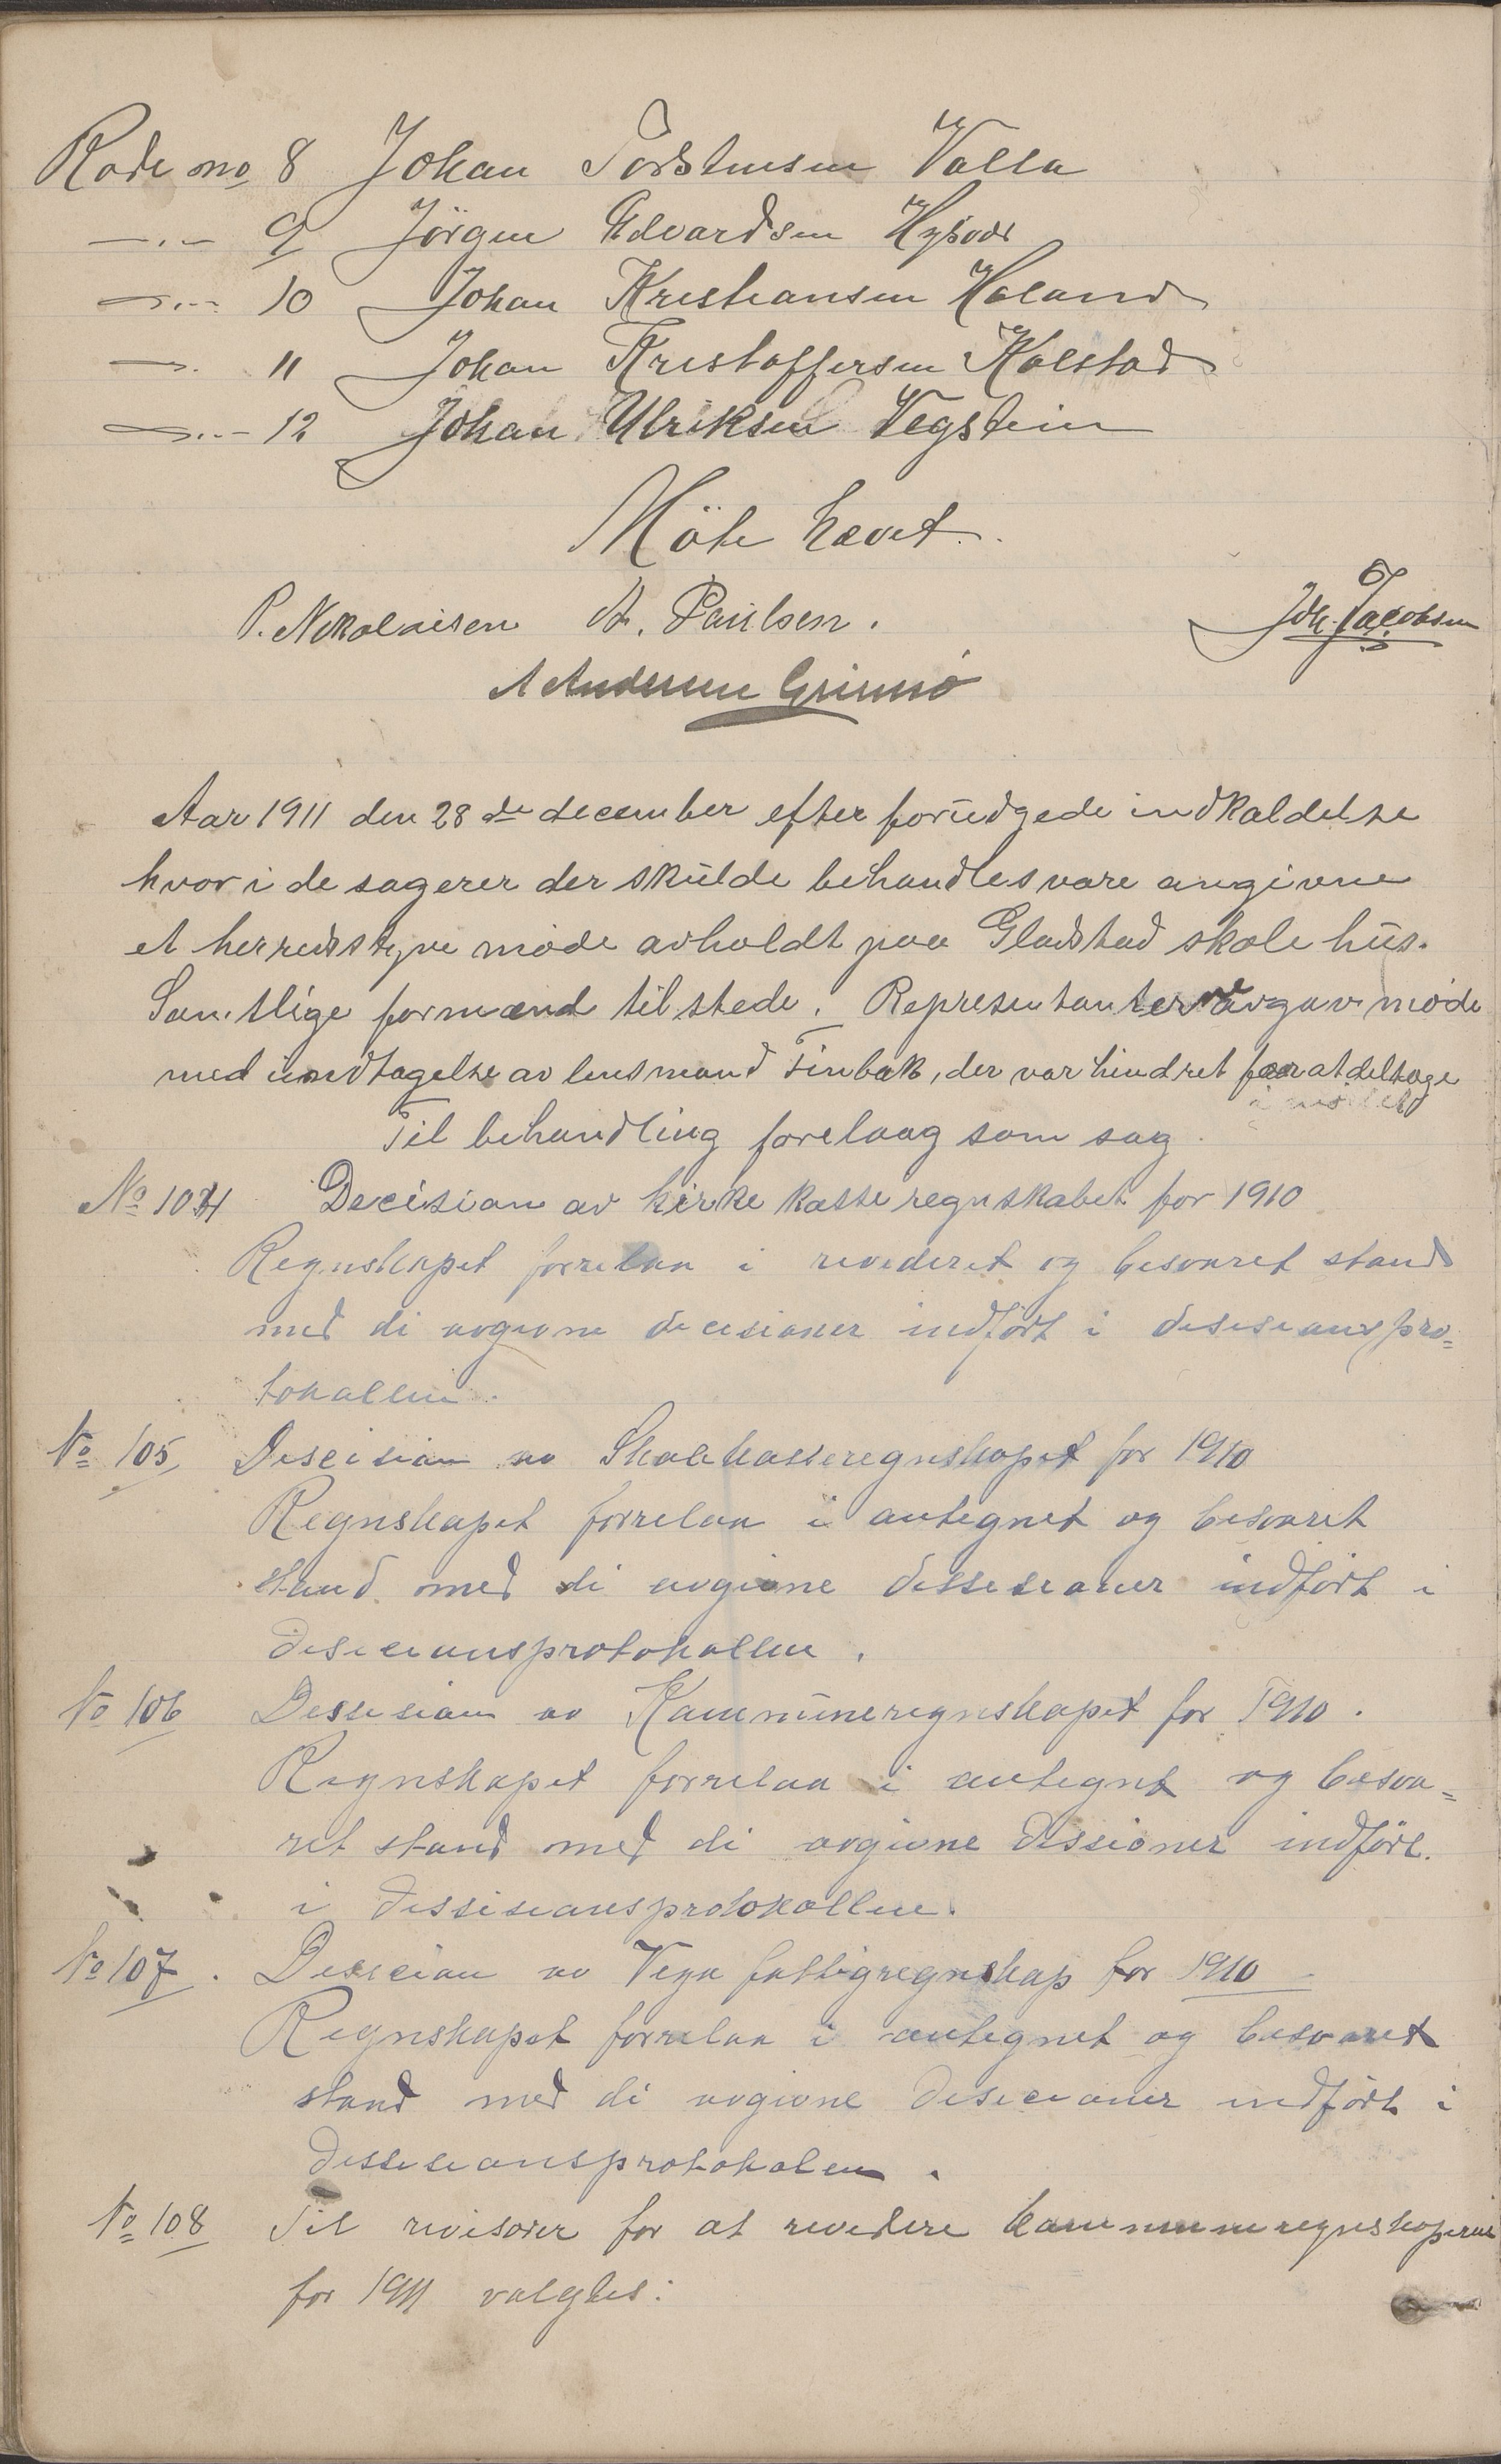 Rode no 8 Johan Torstensen Valla
—„— 9 Jörgen Edvardsen Hysvær
—„— 10 Johan Kristiansen Holand
—„— 11 Johan Kristoffersen Kolstad
—„— 12 Johan Ulriksen Vegstein
Möte hævet.
P. Nikolaisen A. Paulsen. Joh. Jacobsen
A Andersen Grimsö
Aar 1911 den 28de december efter forudgede indkaldelse
hvori de sagerer der skulde behandles vare angivne
et herredsstyre møde avholdt paa Gladstad skole hus.
Samtlige formænd tilstede. Representanter avgav møde
med undtagelse av lensmand Finbak, der var hindret for at deltage
i mötet
Til behandling forelaag som sag
No 104 Decision av kirke kasse regnskabet for 1910
Regnskapet forrelaa i revederet og besvaret stand
med di avgivne decisioner indfört i desisianspro=
tokallen.
No 105 Descision av Skolekasseregnskapet for 1910
Regnskapet forrelaa i antegnet og besvaret
stand med di avgivne dessesioner indfört i
desiciansprotokollen.
No 106 Dessisian av Kammuneregnskapet for 1910.
Regnskapet forrelaa i antegnt og besva=
ret stand med di avgivne dessioner indföre.
i dessisiansprotokollen.
No 107. Desician av Vega fattigregnskap for 1910
Regnskapet forrelaa i antegnet og besvaret
stand med di avgivne desicioner indfört i
dessesiansprotokolen.
No 108 Til revisorer for at revedere kammuneregnskaperne
for 1911 valgtes: